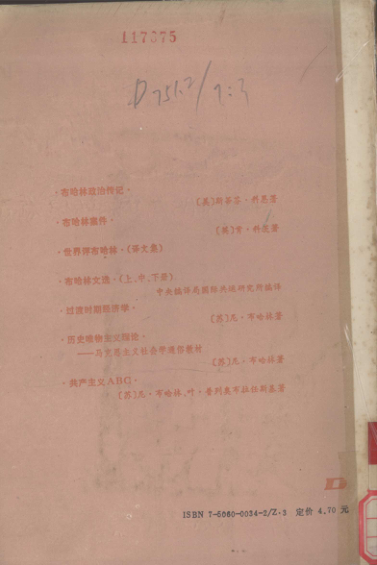 117375
D751.2/2:3
·布哈林政治传记·
〔美〕斯蒂芬·科恩著
·布哈林案件·
〔英〕肯·科茨著
·世界评布哈林·（译文集）
·布哈林文选·（上、中、下册）
中央编译局国际共运研究所编译
·过渡时期经济学·
〔苏〕尼·布哈林著
·历史唯物主义理论·
——马克思主义社会学通俗教材
〔苏〕尼·布哈林著
·共产主义ABC·
〔苏〕尼·布哈林，叶·普列奥布拉任斯基著
D
ISBN 7-5060-0034-2/Z·3 定价 4.70 元